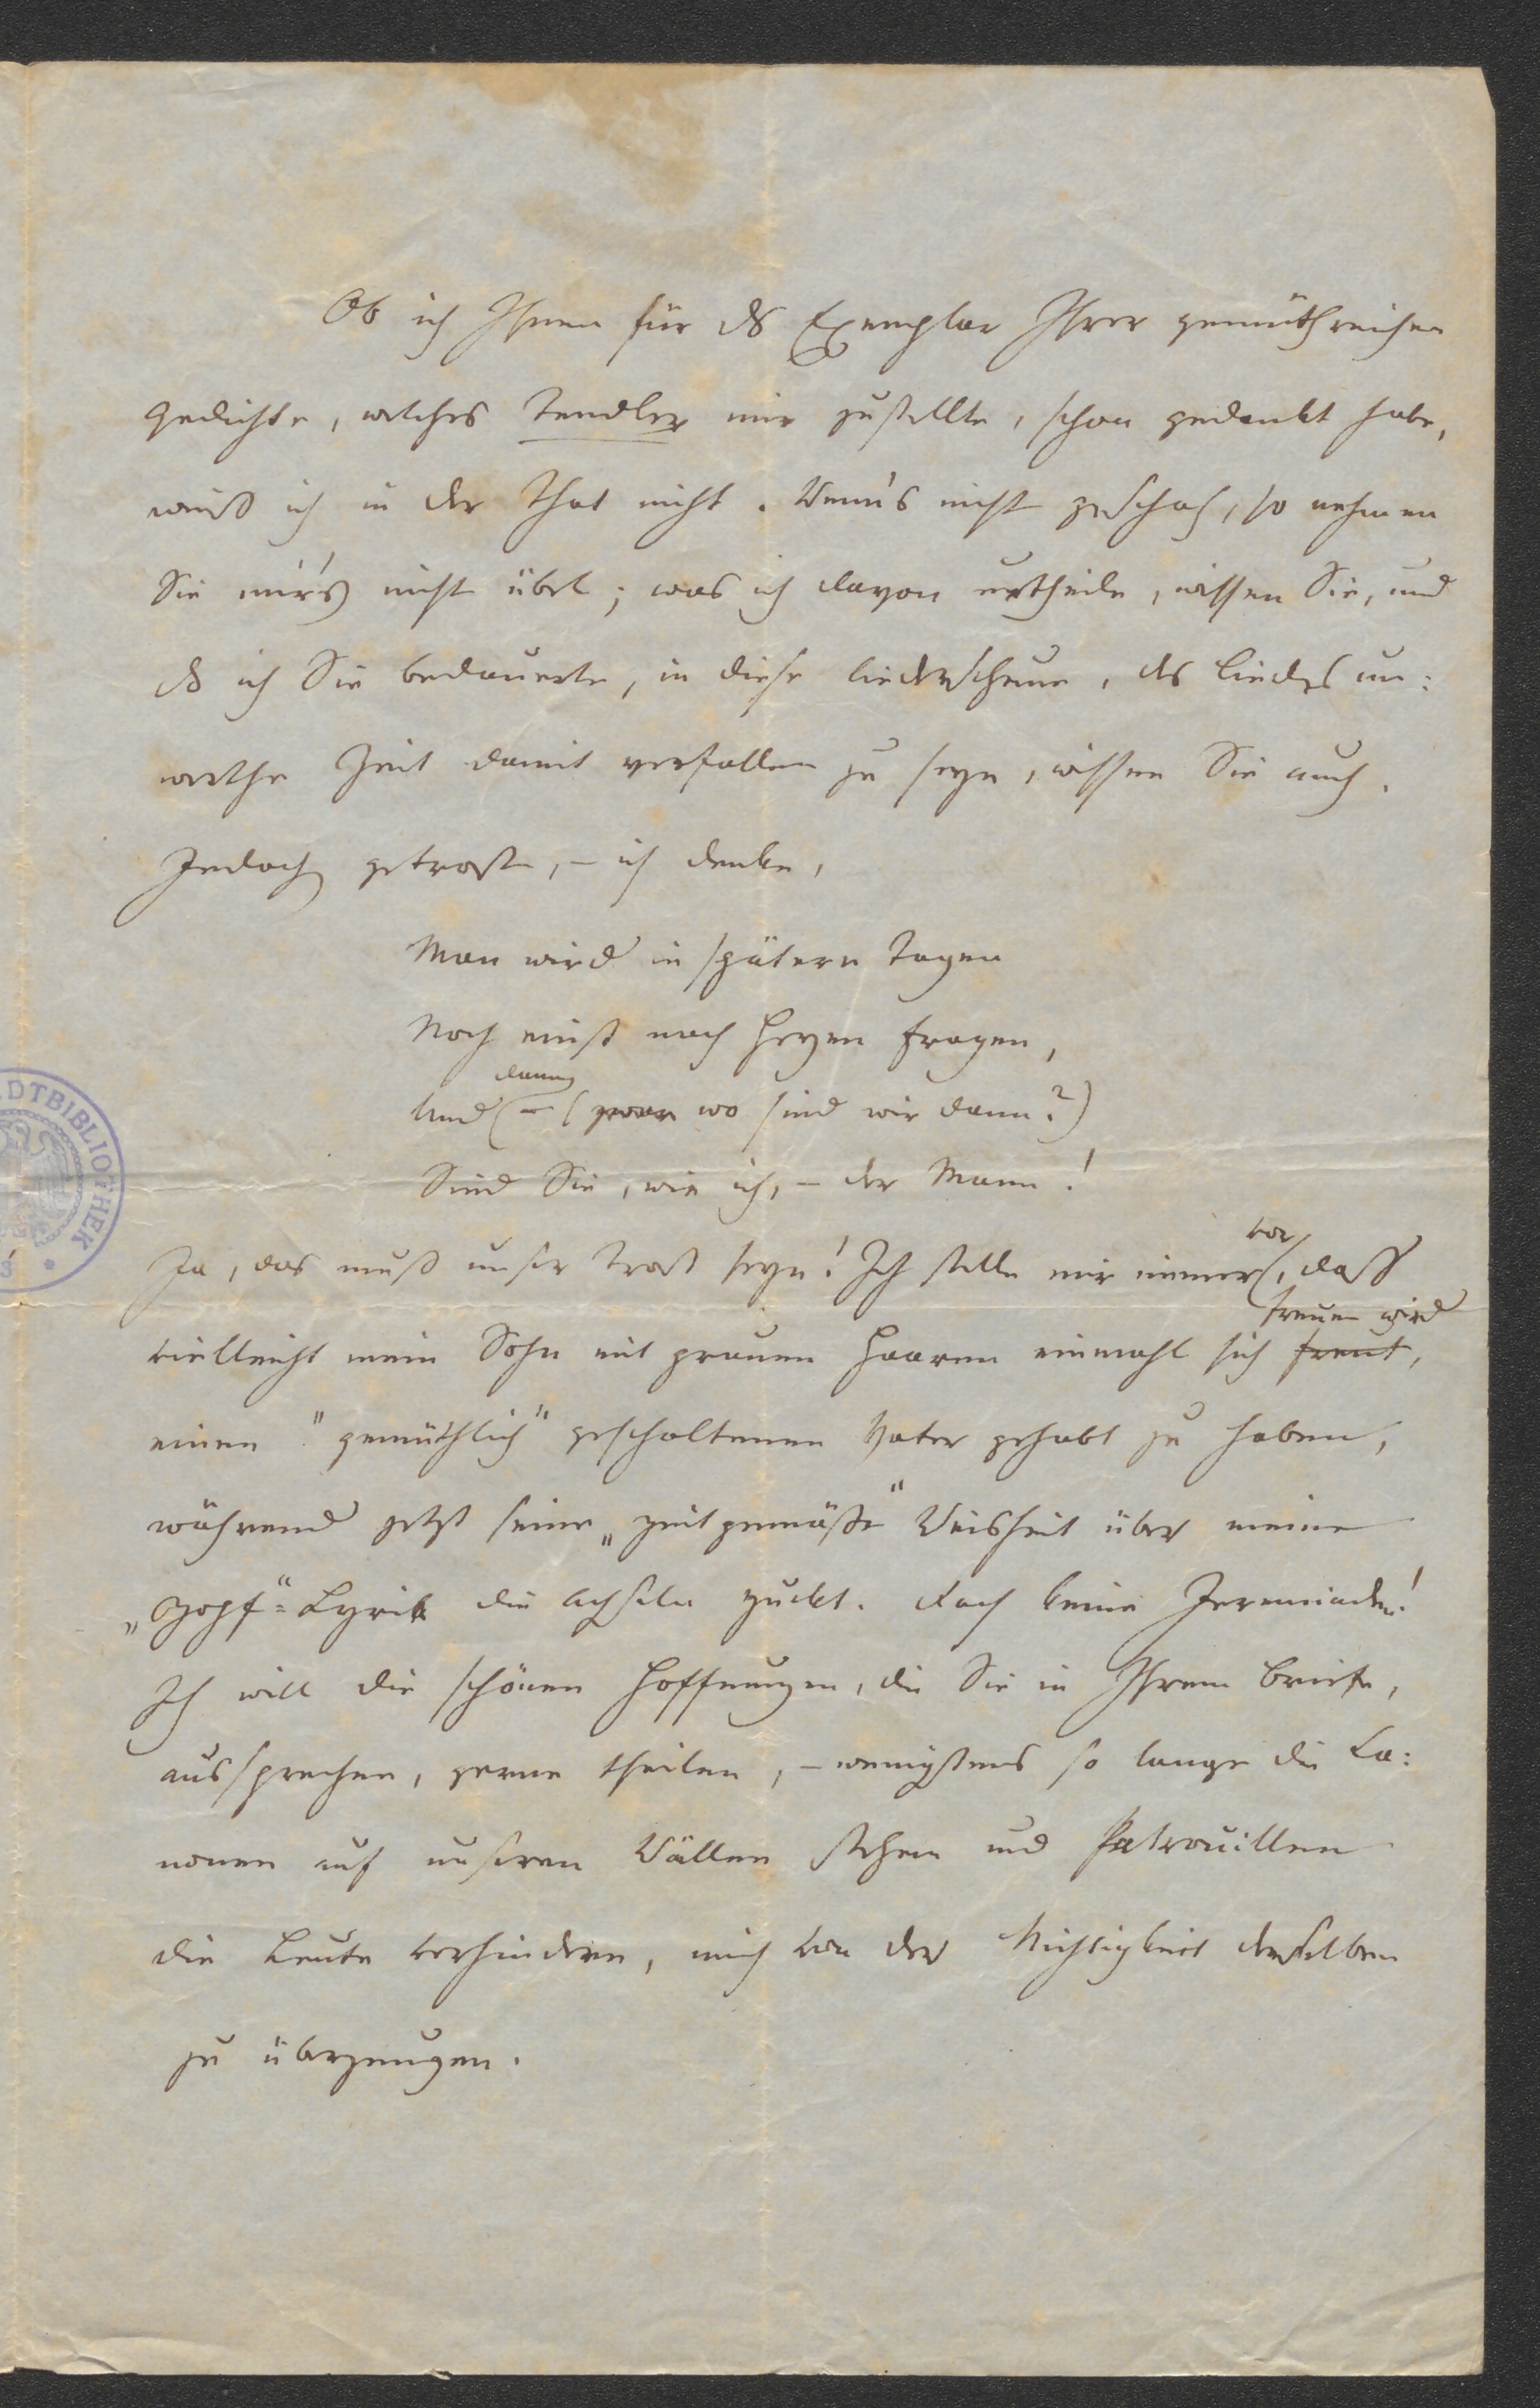 Ob ich Ihnen für ds Exemplar Ihrer gemüthreichen
Gedichte, welches Tendler mir zustellte, schon gedankt habe,
weiß ich in der That nicht. Wenn's nicht geschah, so nehmen
Sie mir's nicht übel; was ich davon urtheile, wissen Sie, und
ds ich Sie bedauerte, in diese liederscheue, des Liedes un:
werthe Zeit damit verfallen zu seyn, wissen Sie auch.
Jedoch getrost, – ich denke,
Man wird in spätern Tagen
Noch einst nach Herzen fragen,
dann
Und – (zwar wo sind wir dann?)
Sind Sie, wie ich, – der Mann!
Ja, das muß unser Trost seyn! Ich stelle mir immer vor, daß
freuen wird
vielleicht mein Sohn mit grauen Haaren einmahl sich freut,
einen "gemüthlich" gescholtenen Vater gehabt zu haben,
während jetzt seine „zeitgemäße" Weisheit über meine
„Zopf"=Lyrik die Achseln zuckt. Doch keine Jeremiaden!
Ich will die schönen Hoffnungen, die Sie in Ihrem Briefe,
aussprechen, gerne theilen, – wenigstens so lange die Ca:
nonen auf unseren Wällen stehen und Patrouillen
die Leute verhindern, mich von der Nichtigkeit derselben
zu überzeugen.
DTBIBLIOTHEK